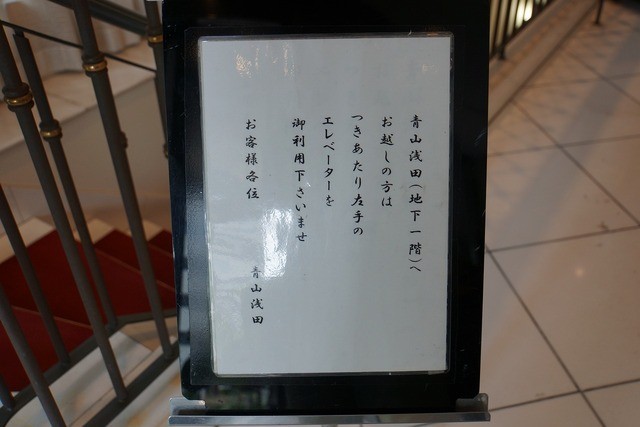 青山浅田(地下一階)へ
お越しの方は
つきあたり左手の
エレベーターを
御利用下さいませ
お客様各位
青山浅田